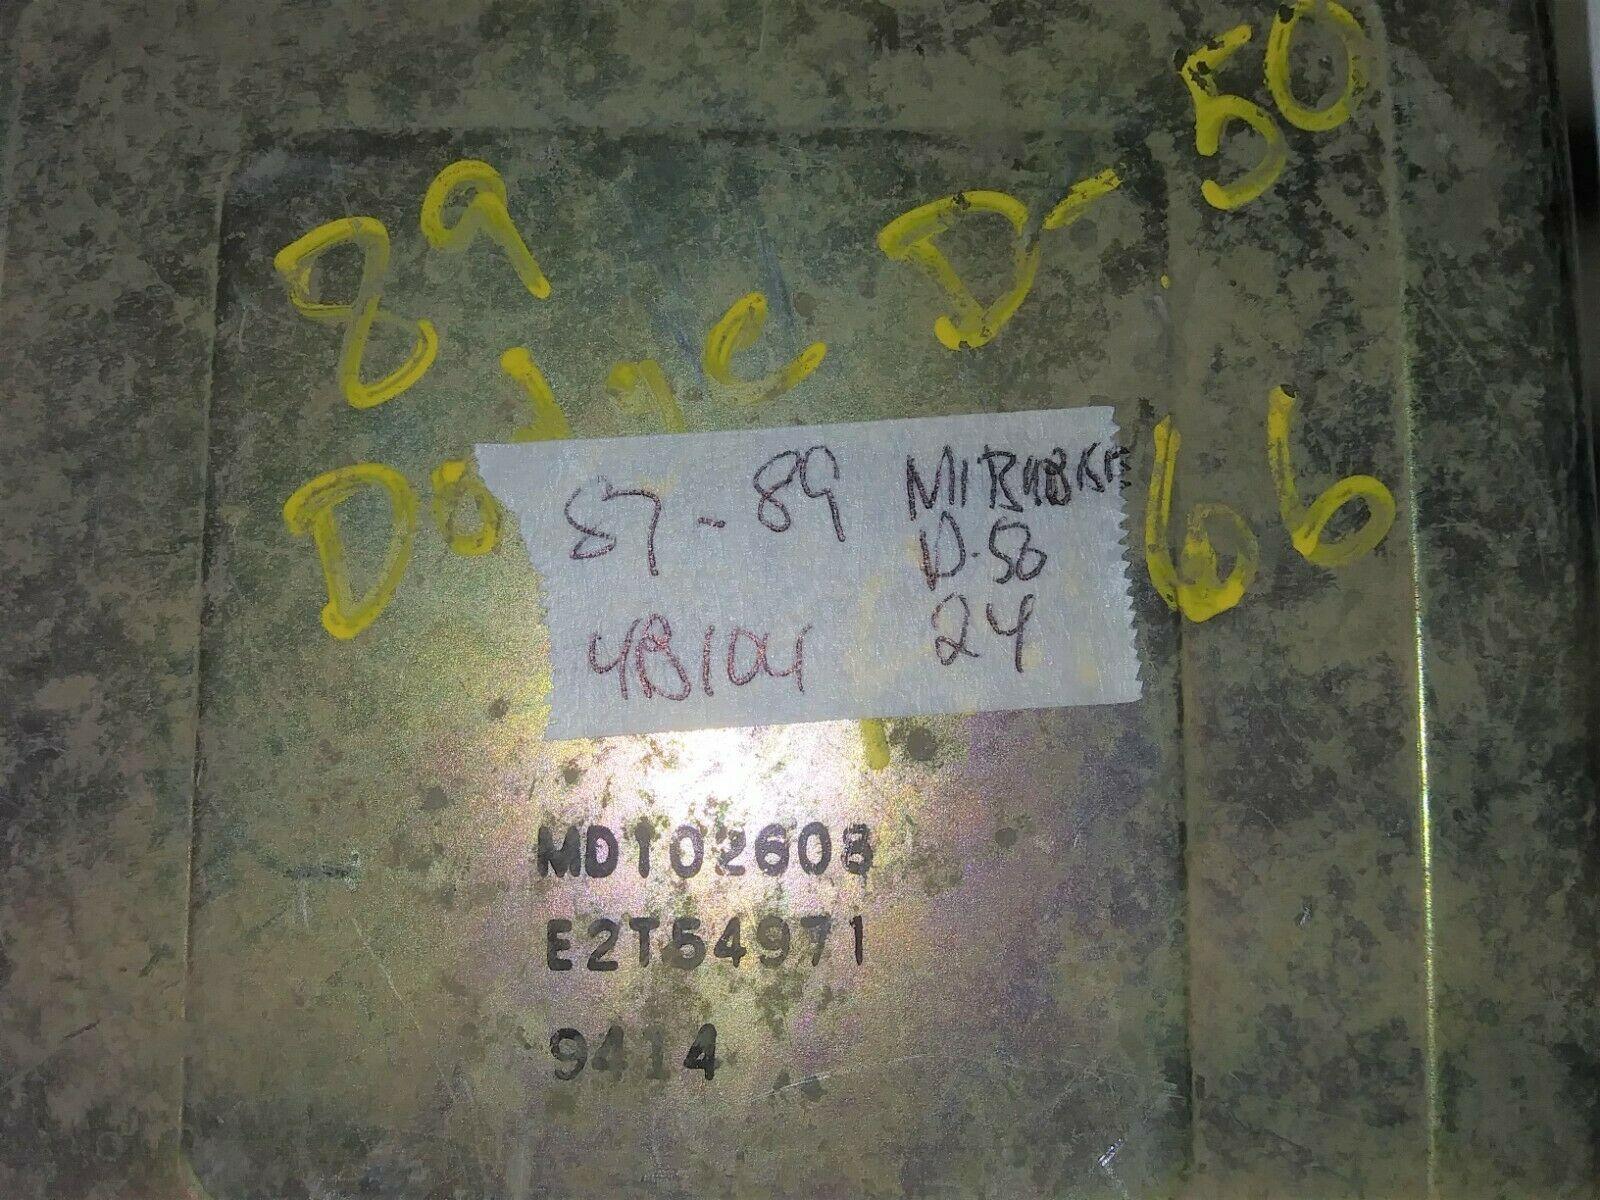 89 D-50
Dodge 66
87-89
D-50
4B104 24
MD102608
E2T54971
9414